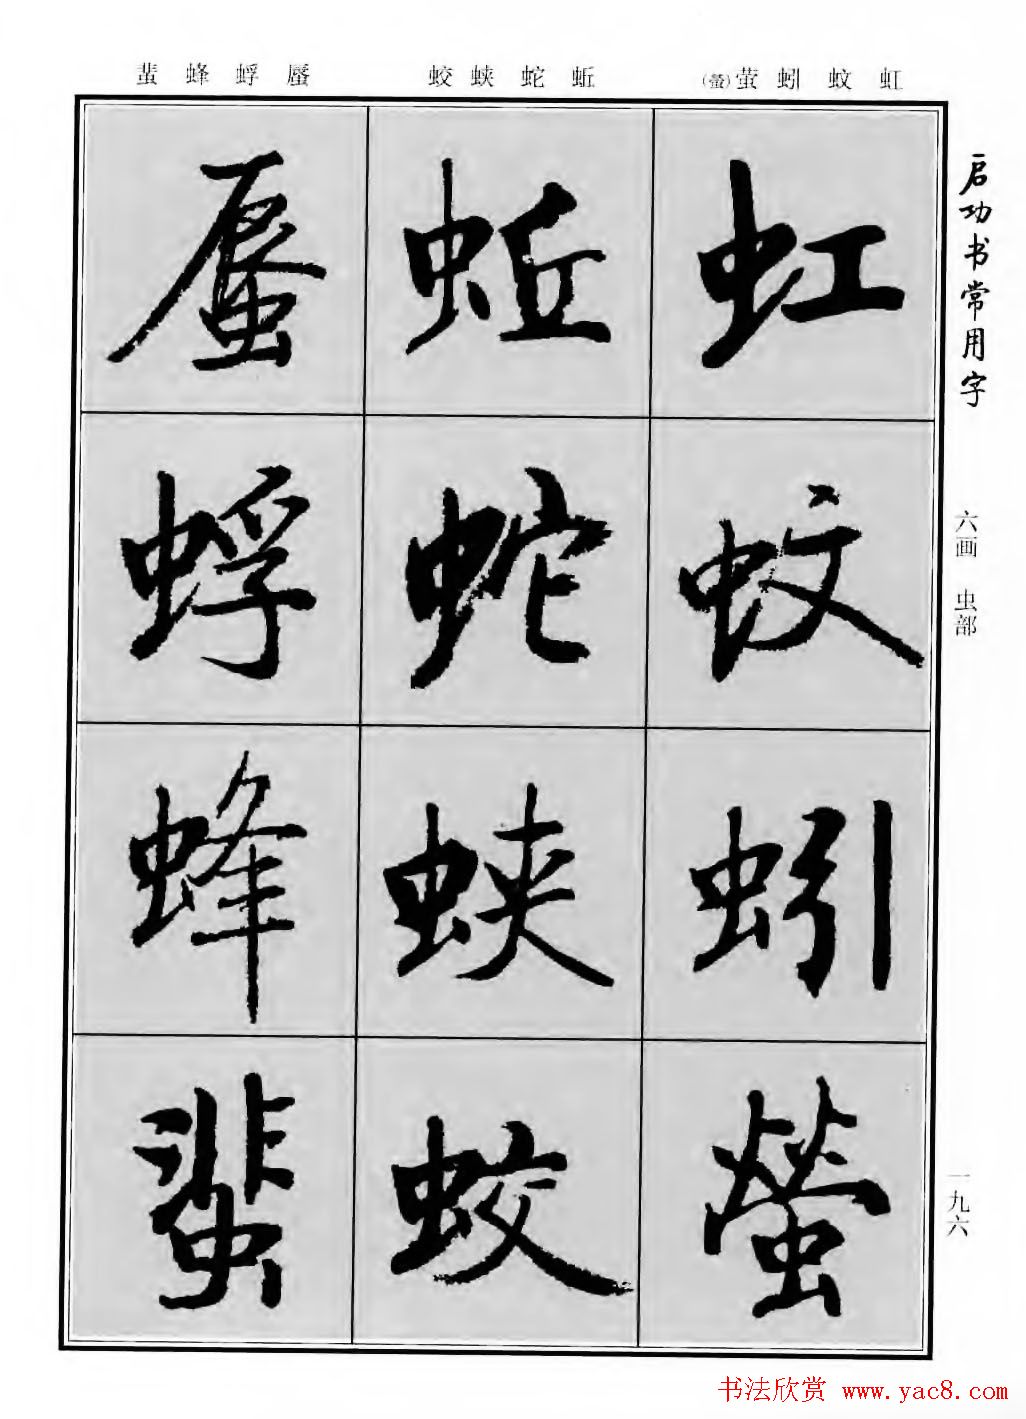 虹 蚊 蚓 萤(螢)
蚯 蛇 蛱 蛟
蜃 蜉 蜂 蜚
启功书常用字
六画 虫部
一九六
虹蚊蚓螢
蚯蛇蛱蛟
蜃蜉蜂蜚
书法欣赏 www.yac8.com